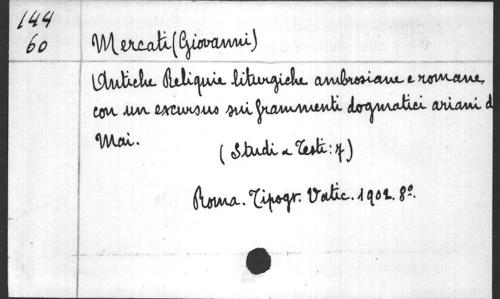 144
60
Mercati (Giovanni)
Antiche Reliquie liturgiche ambrosiane e romane,
con un excursus sui frammenti dogmatici ariani d
Mai.
(Studi e Testi: 7)
Roma. Tipogr. Vatic. 1902. 8º.